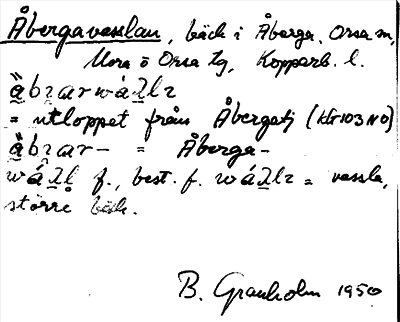 Åbergavasslan, bäck i Åberga. Orsa sn,
Mora o Orsa tg, Kopparb. l.
= utloppet från Åbergatj (Hr 103 NO)
= Åberga-
f., best. f. = vassla,
större bäck.
B. Granholm 1950